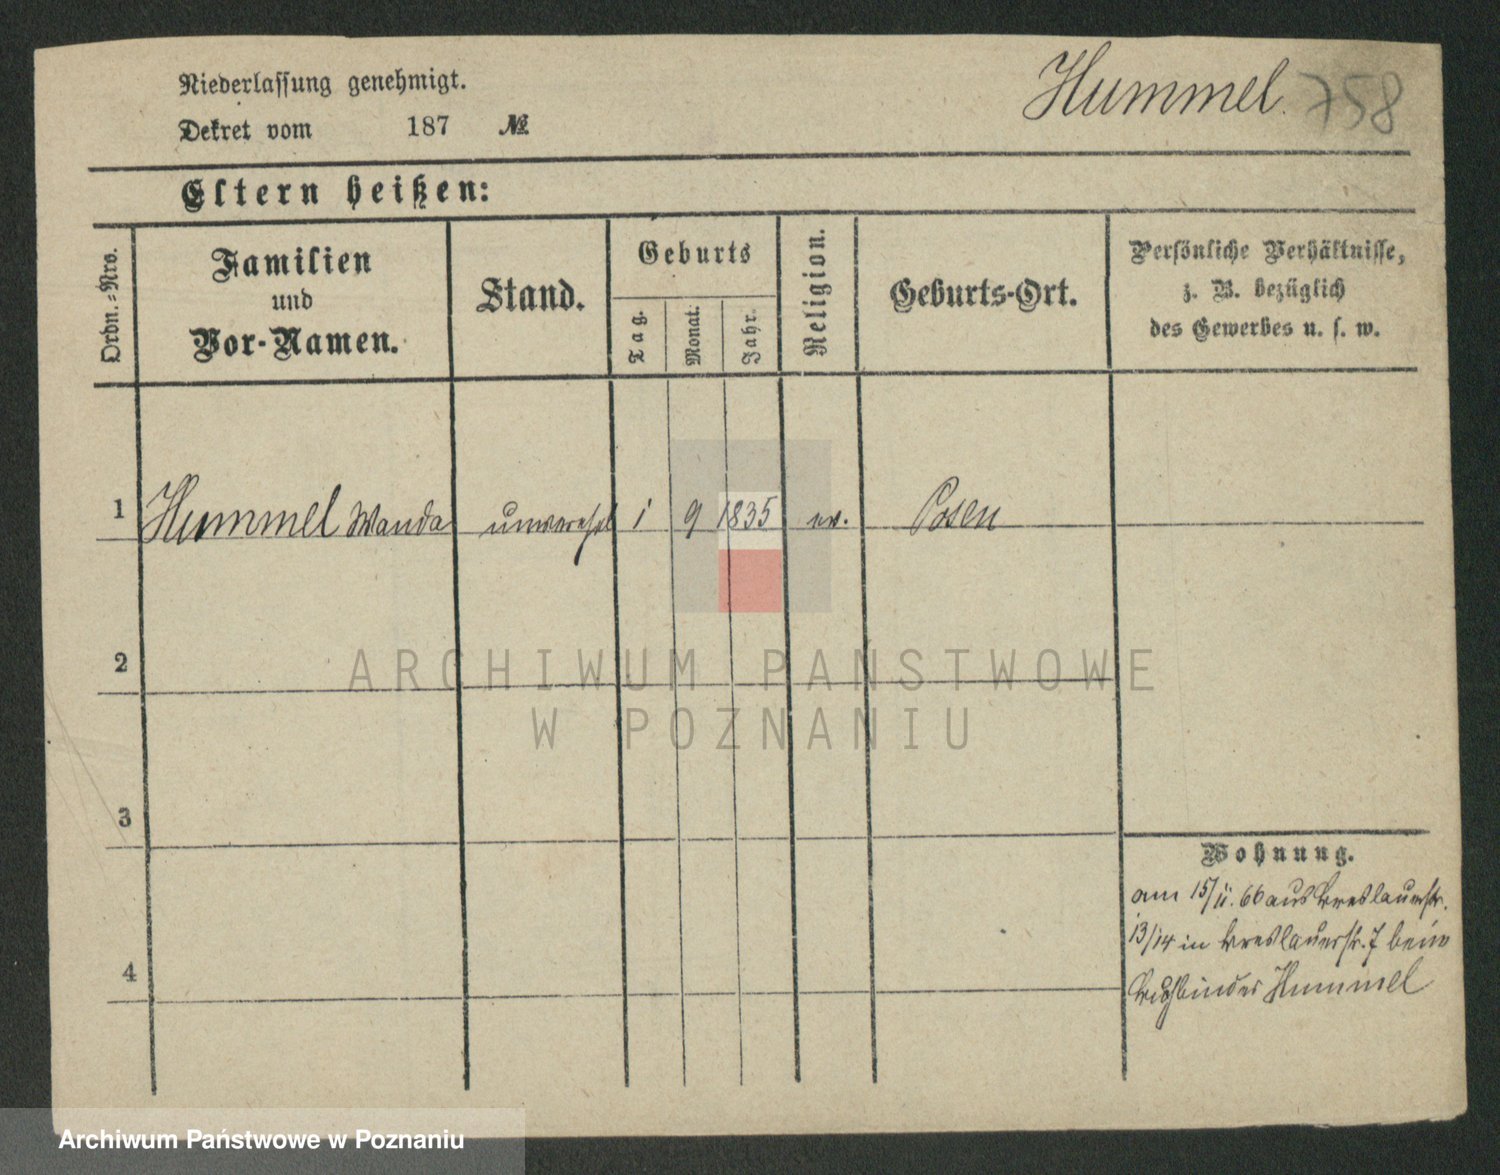 Niederlassung genehmigt.
Dekret vom 187 №
Hummel 758
Eltern heißen:
Ordn.-Nro.
Familien
und
Vor-Namen.
Stand.
Geburts
Tag.
Monat.
Jahr.
Religion.
Geburts-Ort.
Persönliche Verhältnisse,
z. B. bezüglich
des Gewerbes u. s. w.
1 Hummel Wanda unverehel 1 9 1835 ev. Posen
2
3
4
Wohnung.
am 15/11. 66 aus Breslauerstr.
13/14 in Breslauerstr. 7 beim
Buchbinder Hummel
ARCHIWUM PAŃSTWOWE
W POZNANIU
Archiwum Państwowe w Poznaniu